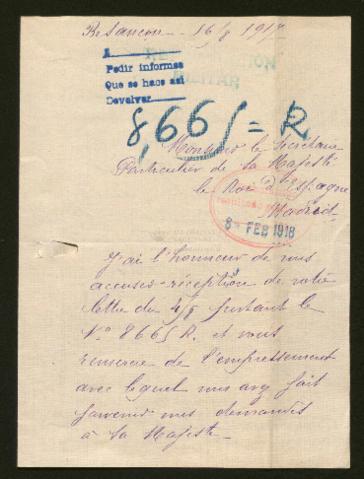 Besançon - 16/8 1917
A
Pedir informes
Que se hace así
Devolver
MILITAR
8,665 = R
Monsieur le Secrétaire
Particulier de la Majesté
le Roi d'Espagne
Madrid
8 - FEB 1918
J'ai l'honneur de vous
accuser réception de votre
lettre du 4/8 portant le
No 8665 R. et vous
remercie de l'empressement
avec lequel vous avez fait
parvenir mes demandes
à Sa Majesté